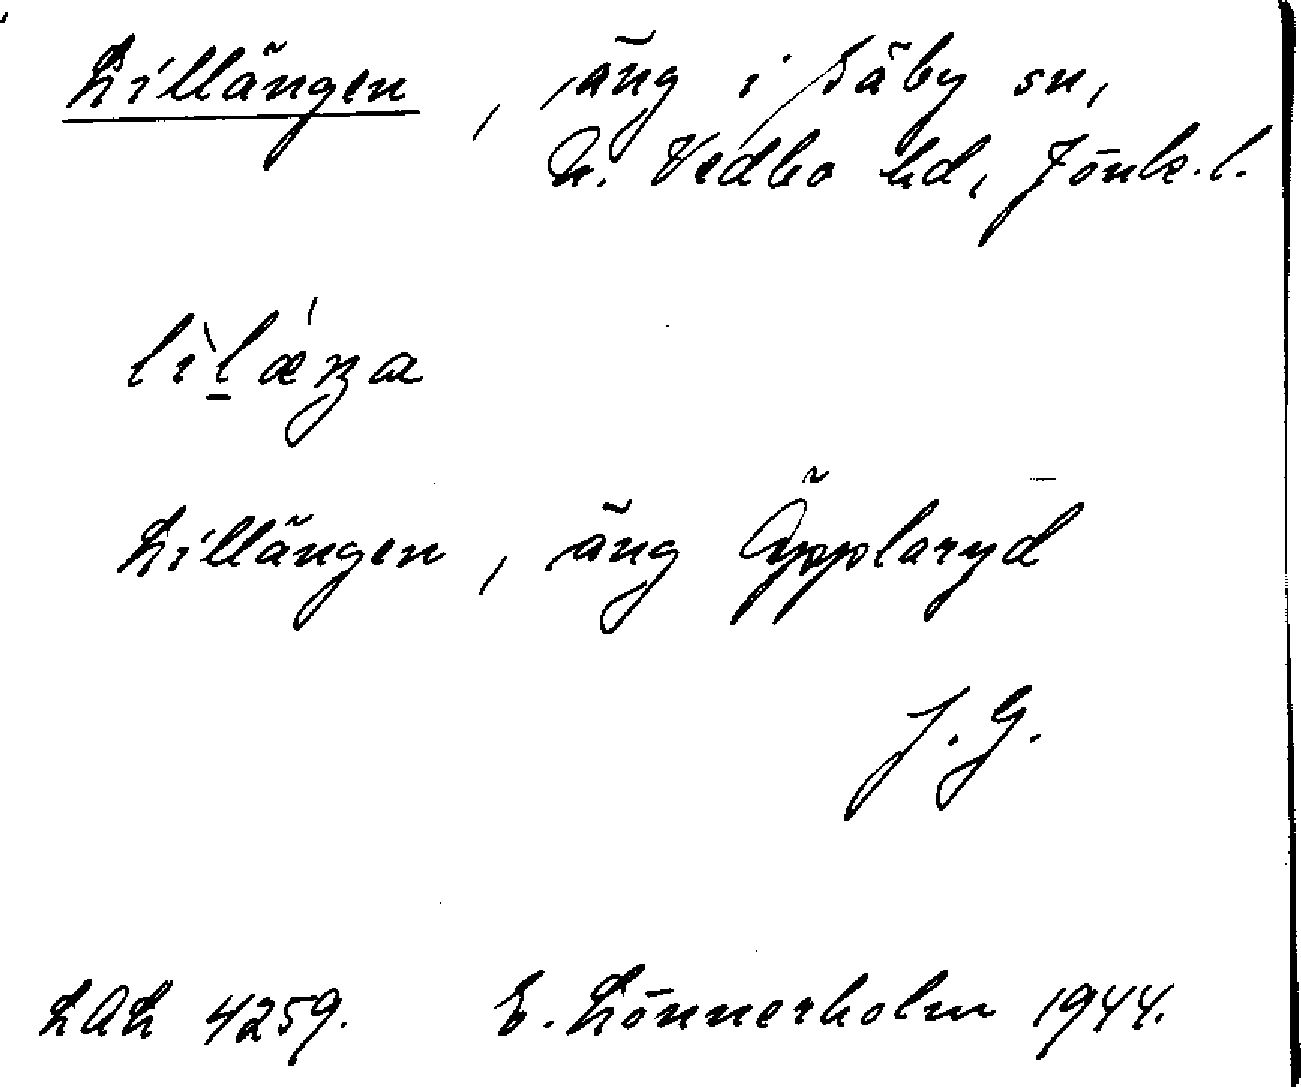 Lillängen, äng i Säby sn,
N. Vedbo hd, Jönk. l.
lìl̠ǽŋa
Lillängen, äng Äpplaryd
J. G.
LAL 4259. E. Lönnerholm 1944.